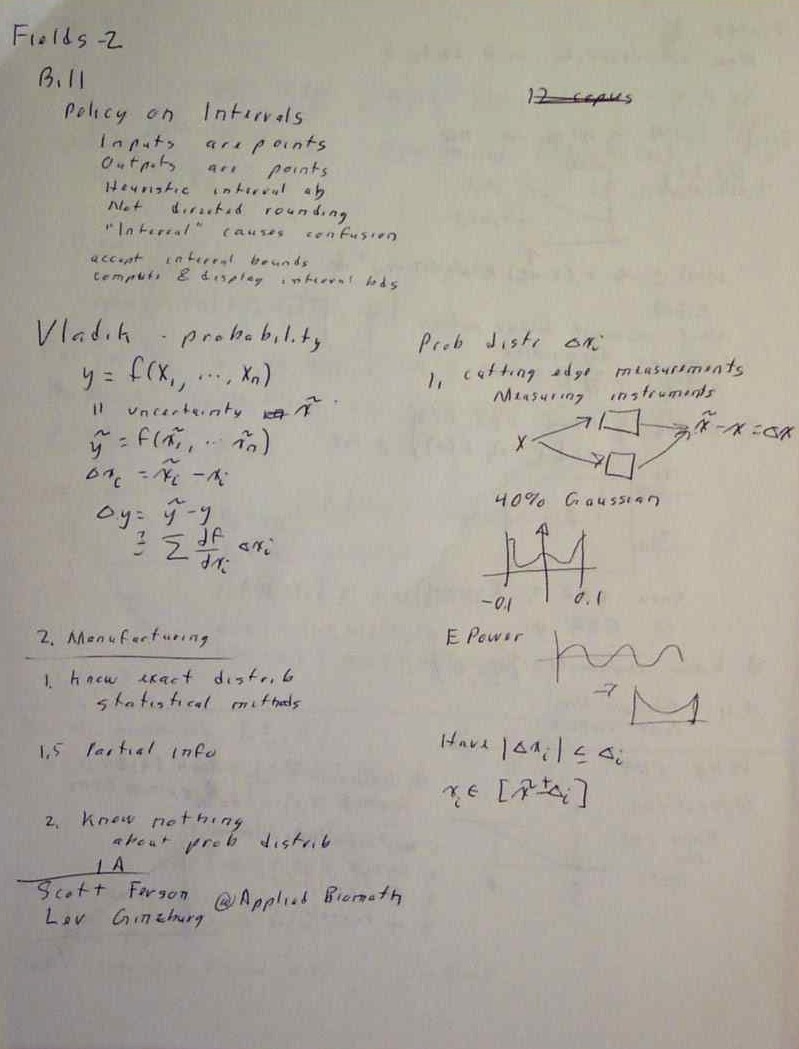 Fields-2
Bill
12 copies
Policy on Intervals
Inputs are points
Outputs are points
Heuristic interval
Not directed rounding
"Interval" causes confusion
accept interval bounds
compute & display interval bds
Vladik - probability
y = f(x₁, ..., xₙ)
11 uncertainty x̃
ỹ = f(x̃₁, ... x̃ₙ)
Δxᵢ = x̃ᵢ - xᵢ
Δy = ỹ - y
≟ Σ df/dxᵢ Δxᵢ
Prob distr Δxᵢ
1, cutting edge measurements
Measuring instruments
x x̃ - x = Δx
40% Gaussian
-0.1 0.1
2. Manufacturing
1. know exact distrib
statistical methods
1.5 Partial info
2. Know nothing
about prob distrib
IA
Scott Ferson @Applied Biomath
Lev Ginzburg
E Power
Have |Δxᵢ| ≤ Δᵢ
xᵢ ∈ [x̃ ± Δᵢ]